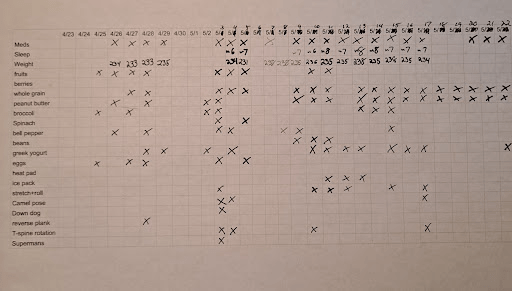 3 4 5 6 7 8 9 10 11 12 13 14 15 16 17 18 19 20 21 22
4/23 4/24 4/25 4/26 4/27 4/28 4/29 4/30 5/1 5/2
Meds x x x x x x x x x x x x x x x x x x x
Sleep ~6 ~7 ~7 ~6 ~8 ~7 ~8 ~8 ~7 ~7 ~7
Weight 234 233 233 235 234 231 235 236 235 235 235 234
fruits x x x x x x x x
berries
whole grain x x x x x x x x x x x x x x x x x x
peanut butter x x x x x x x x x x x x x x x x x
broccoli x x x x x x x
Spinach x x
bell pepper x x x x x x x
beans x x x
greek yogurt x x x x x x x x x x x x
eggs x x x x x
heat pad
ice pack x x x
stretch+roll x x x x x x
Camel pose x x x
Down dog x
reverse plank x
T-spine rotation x x x x
Supermans x